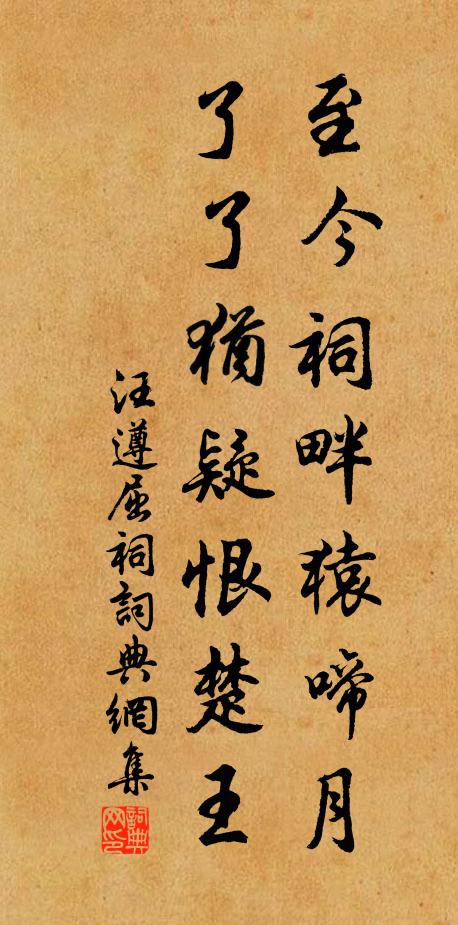 至今祠畔猿啼月
了了猶疑恨楚王
汪遵屈祠詞典網集
詞典网印